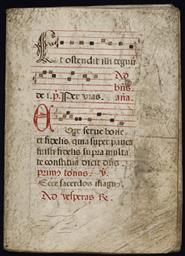 Et ostendit illi regnū
Ad
de i. p. Per vias. aña.
Uge serue bone
et fidelis, quia super pauca
fuisti fidelis supra multa
te constituā dicit dñs.
primus tonus. ℣.
Ecce sacerdos magn⁹
Ad vesperas ℟.